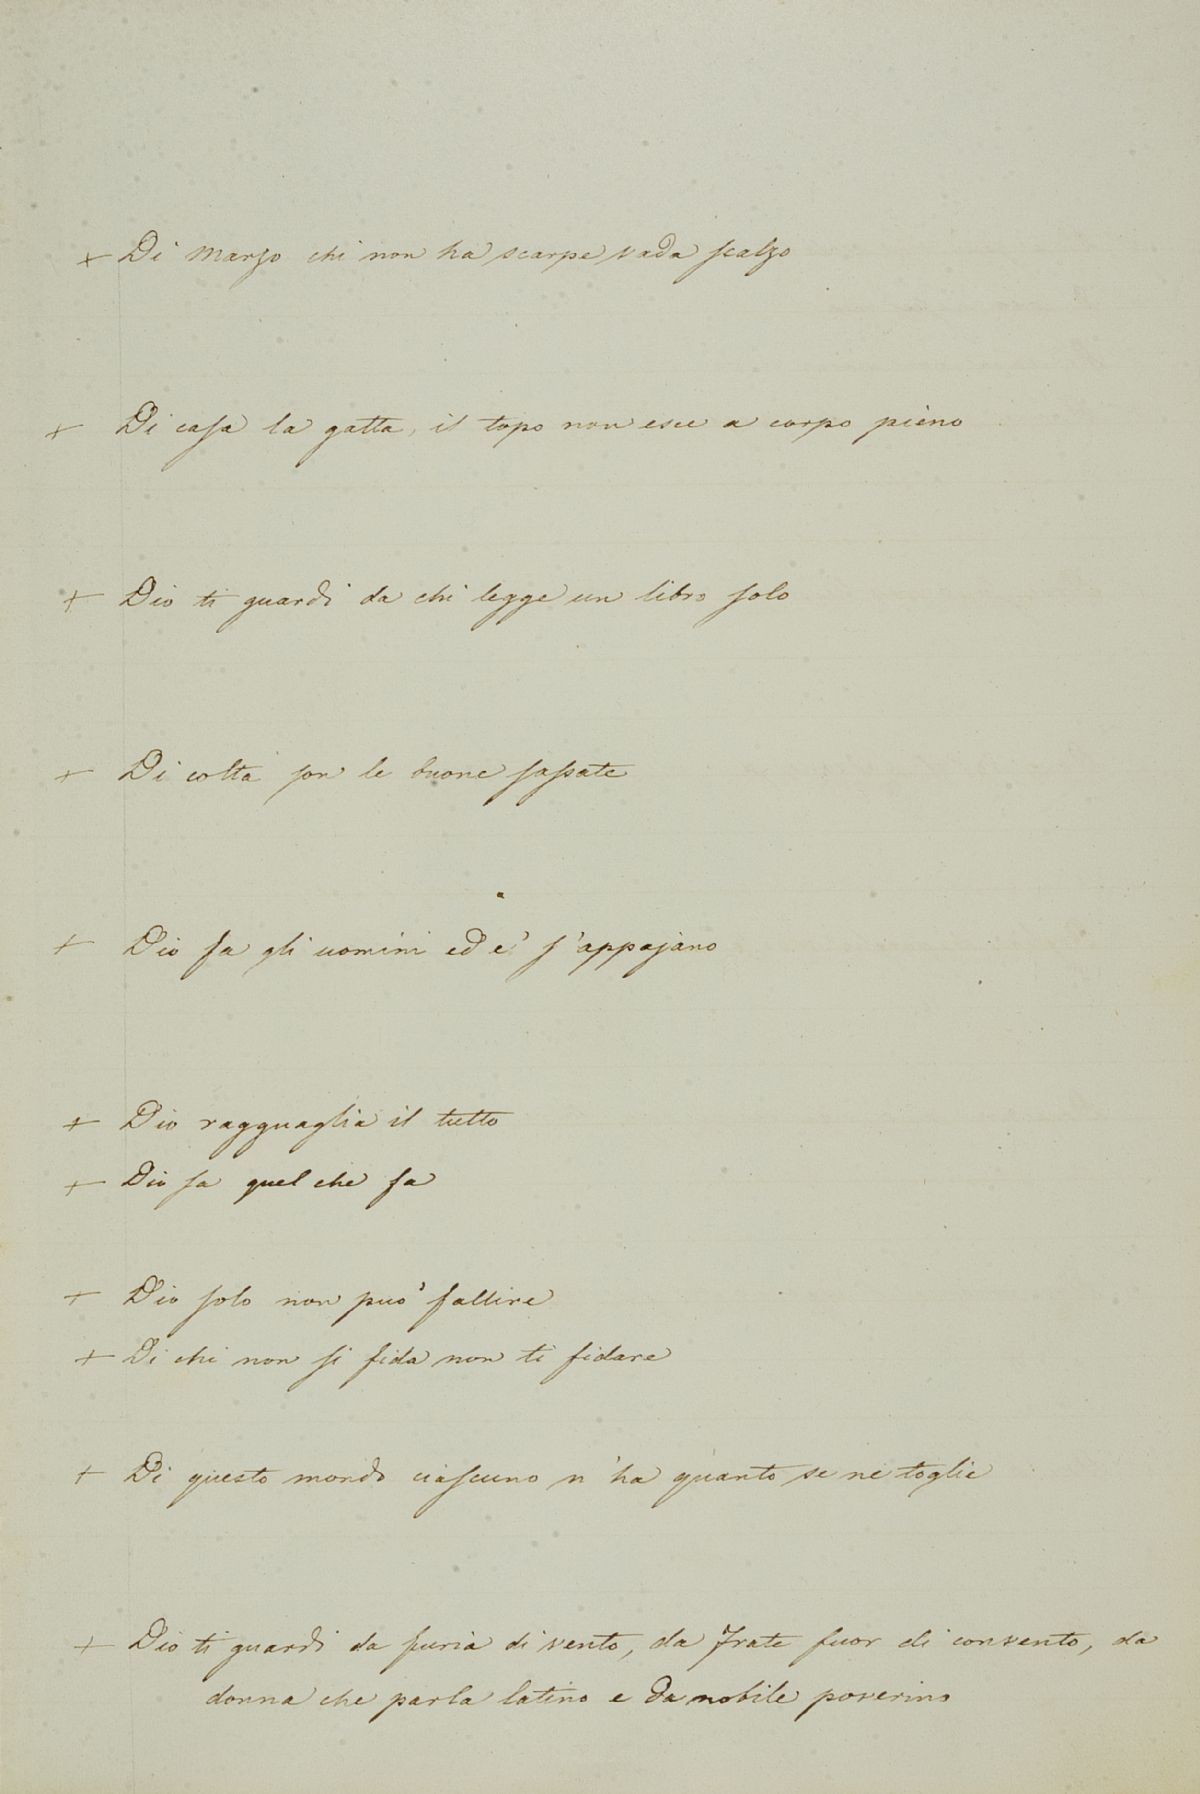 + Di Marzo chi non ha scarpe vada scalzo
+ Di casa la gatta, il topo non esce a corpo pieno
+ Dio ti guardi da chi legge un libro solo
+ Di colta son le buone sassate
+ Dio fa gli uomini ed e' s'appajano
+ Dio ragguaglia il tutto
+ Dio sa quel che fa
+ Dio solo non può fallire
+ Di chi non si fida non ti fidare
+ Di questo mondo ciascuno n'ha quanto se ne toglie
+ Dio ti guardi da furia di vento, da frate fuor di convento, da
donna che parla latino e da nobile poverino